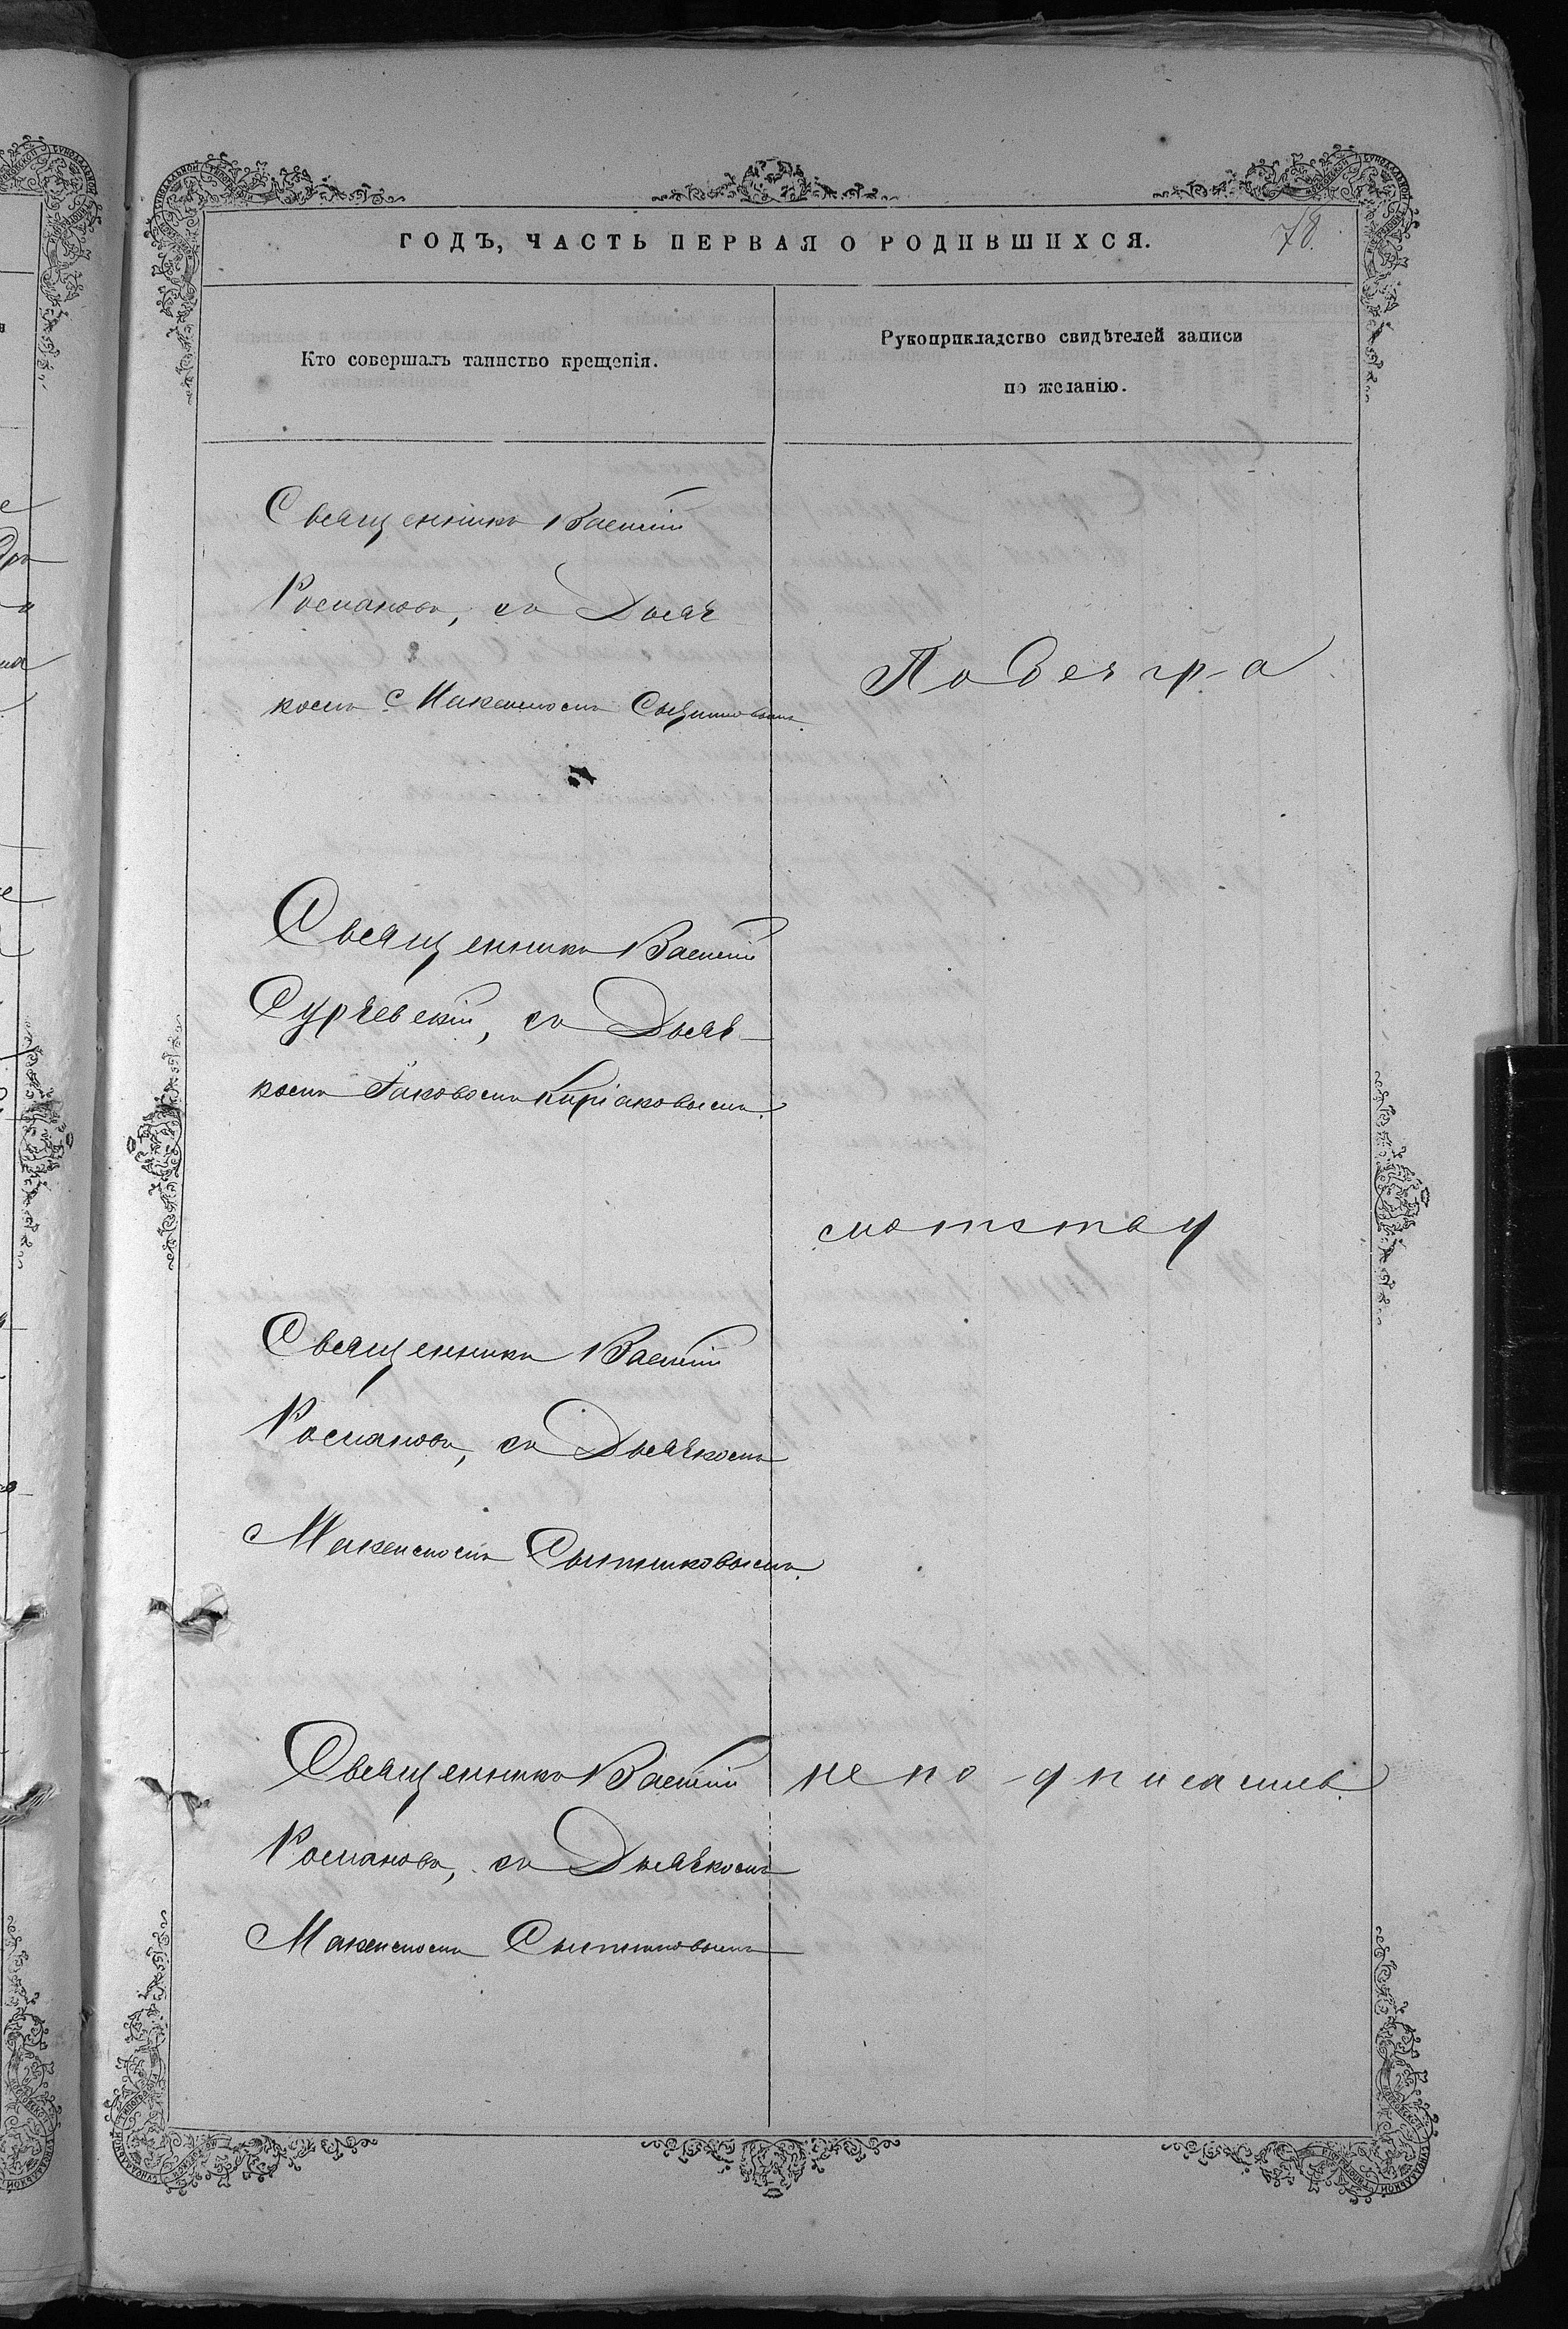 ГОДЪ, ЧАСТЬ ПЕРВАЯ О РОДИВШИХСЯ.
78.
Кто совершалъ таинство крещенія.
Рукоприкладство свидѣтелей записи
по желанію.
Священникъ Василій
Романовъ, съ Дьяч-
комъ Максимомъ
Священникъ Василій
Сурчевскій, съ Дьяч-
комъ Іаковомъ Киріаковымъ.
Священникъ Василій
Романовъ, съ Дьячкомъ
Максимомъ Сытниковымъ.
не по-дписались
Священникъ Василій
Романовъ, съ Дьячкомъ
Максимомъ Сытниковымъ